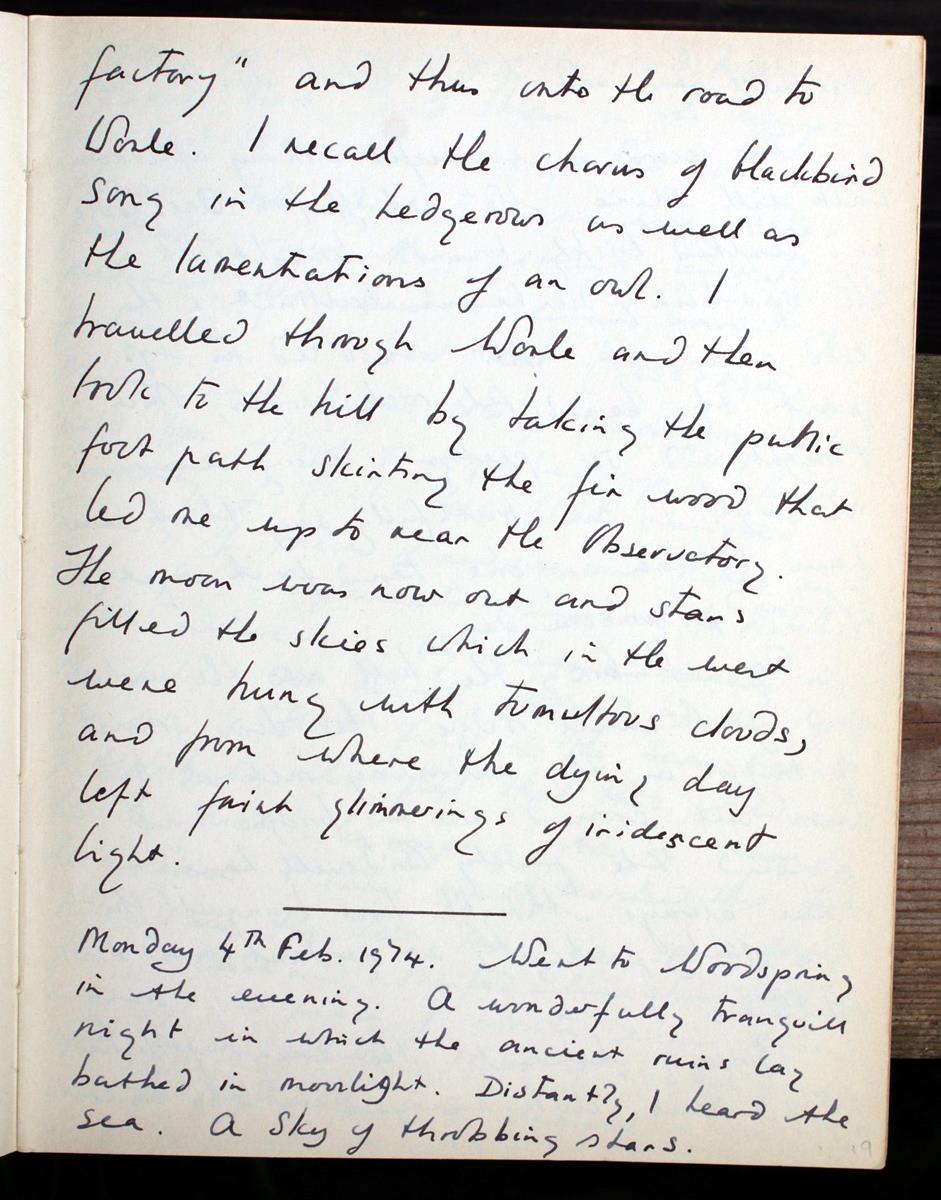 factory" and thus onto the road to
Worle. I recall the chorus of blackbird
song in the hedgerows as well as
the lamentations of an owl. I
travelled through Worle and then
took to the hill by taking the public
foot path skirting the fir wood that
led me up to near the Observatory.
The moon was now out and stars
filled the skies which in the west
were hung with tumultous clouds,
and from where the dying day
left faint glimmerings of iridescent
light.
Monday 4th Feb. 1974. Went to Woodspring
in the evening. A wonderfully tranquill
night in which the ancient ruins lay
bathed in moonlight. Distantly, I heard the
sea. A sky of throbbing stars.
19